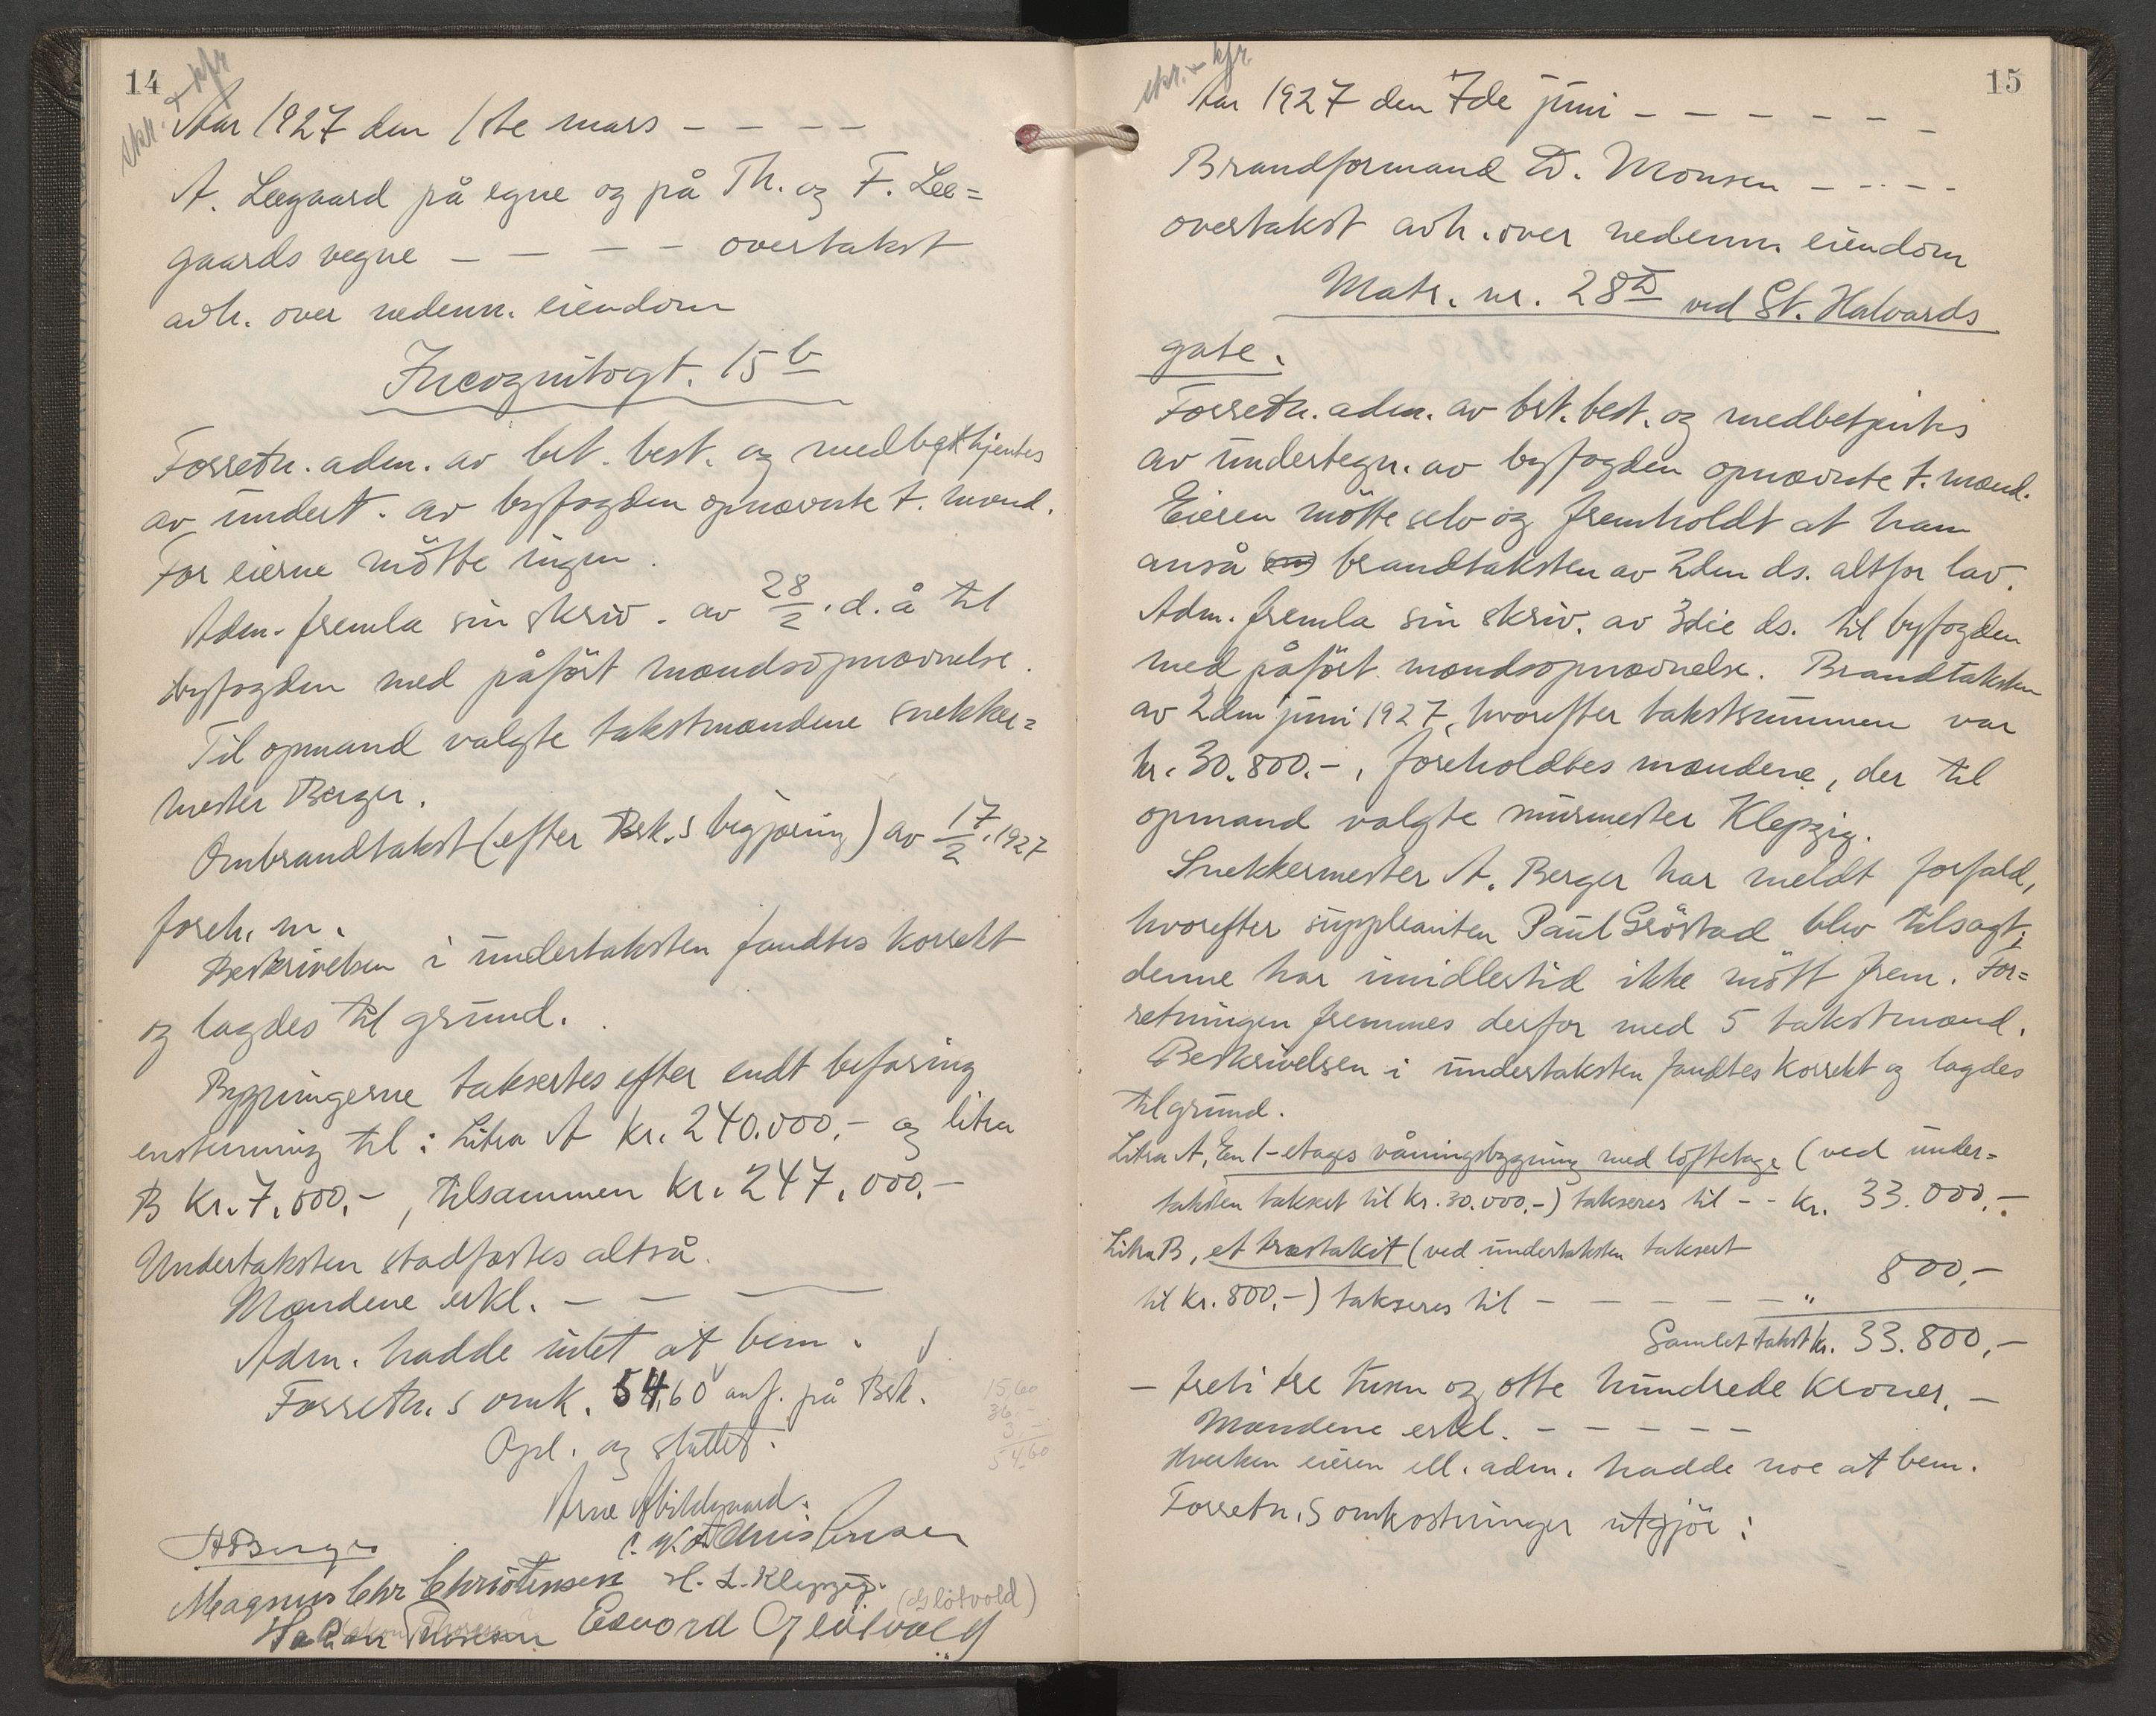 14
skr. + kfr
Aar 1927 den 1ste mars - - - -
A. Leegaard på egne og på Th. og F. Lee=
gaards vegne - - - - overtakst
avh. over nedenn. eiendom
Incognitogt. 15 b
Forretn. adm. av brt. best. og medbetjentes
av undert. av byfogden opnævnte t. mænd.
For eierne mötte ingen.
Adm. fremla sin skriv. av 28/2. d. å til
byfogden med påfört mændsopnævnelse.
Til opmand valgte takstmændene snekker=
mester Berger.
Ombrandtakst (efter Brk.s begjæring) av 17/2. 1927
foreh. m.
Beskrivelsen i undertaksten fandtes korrekt
og lagdes til grund.
Bygningerne taksertes efter endt befaring
enstemmig til: Litra A kr. 240.000,- og litra
B kr. 7.000,-, tilsammen kr. 247.000,-
Undertaksten stadfæstes altså.
Mændene erkl. - - -
Adm. hadde intet at bem.
Forretn.s omk. 54,60 anf. på Brk.
15,60
36,-
3,-
54,60
Opl. og sluttet.
Arne Abildgaard.
HBerger
Christensen
Magnus Chr Christensen H. L. Klepzig.
(Glötvold)
Håkon Thoresen Edvard Glötvold
15
skr. + kfr.
Aar 1927 den 7de juni - - - - - - -
Brandformand D. Monsen - - - -
overtakst avh. over nedenn. eiendom
Matr. nr. 28 D ved St. Halvards
gate.
Forretn. adm. av brt. best. og medbetjentes
av undertegn. av byfogden opnævnte t. mænd.
Eieren mötte selv og fremholdt at han
anså brandtaksten av 2den ds. altfor lav.
Adm. fremla sin skriv. av 3die ds. til byfogden
med påfört mændsopnævnelse. Brandtaksten
av 2den juni 1927, hvorefter takstsummen var
kr. 30.800.-, foreholdtes mændene, der til
opmand valgte murmester Klepzig.
Snekkermester A. Berger har meldt forfald,
hvorefter suppleanten Paul Gröstad blev tilsagt;
denne har imidlertid ikke mött frem. For=
retningen fremmes derfor med 5 takstmænd.
Beskrivelsen i undertaksten fandtes korrekt og lagdes
til grund.
Litra A, En 1-etages våningsbygning med loftetage (ved under=
taksten taksert til kr. 30.000,-) takseres til - - kr. 33.000,-
Litra B, et træstakit (ved undertaksten taksert
til kr. 800,-) takseres til - - - - - - " 800,-
Samlet takst kr. 33.800,-
- treti tre tusen og otte hundrede kroner. -
Mændene erkl. - - - - -
Hverken eieren ell. adm. hadde noe at bem.
Forretn.s omkostninger utgjör: